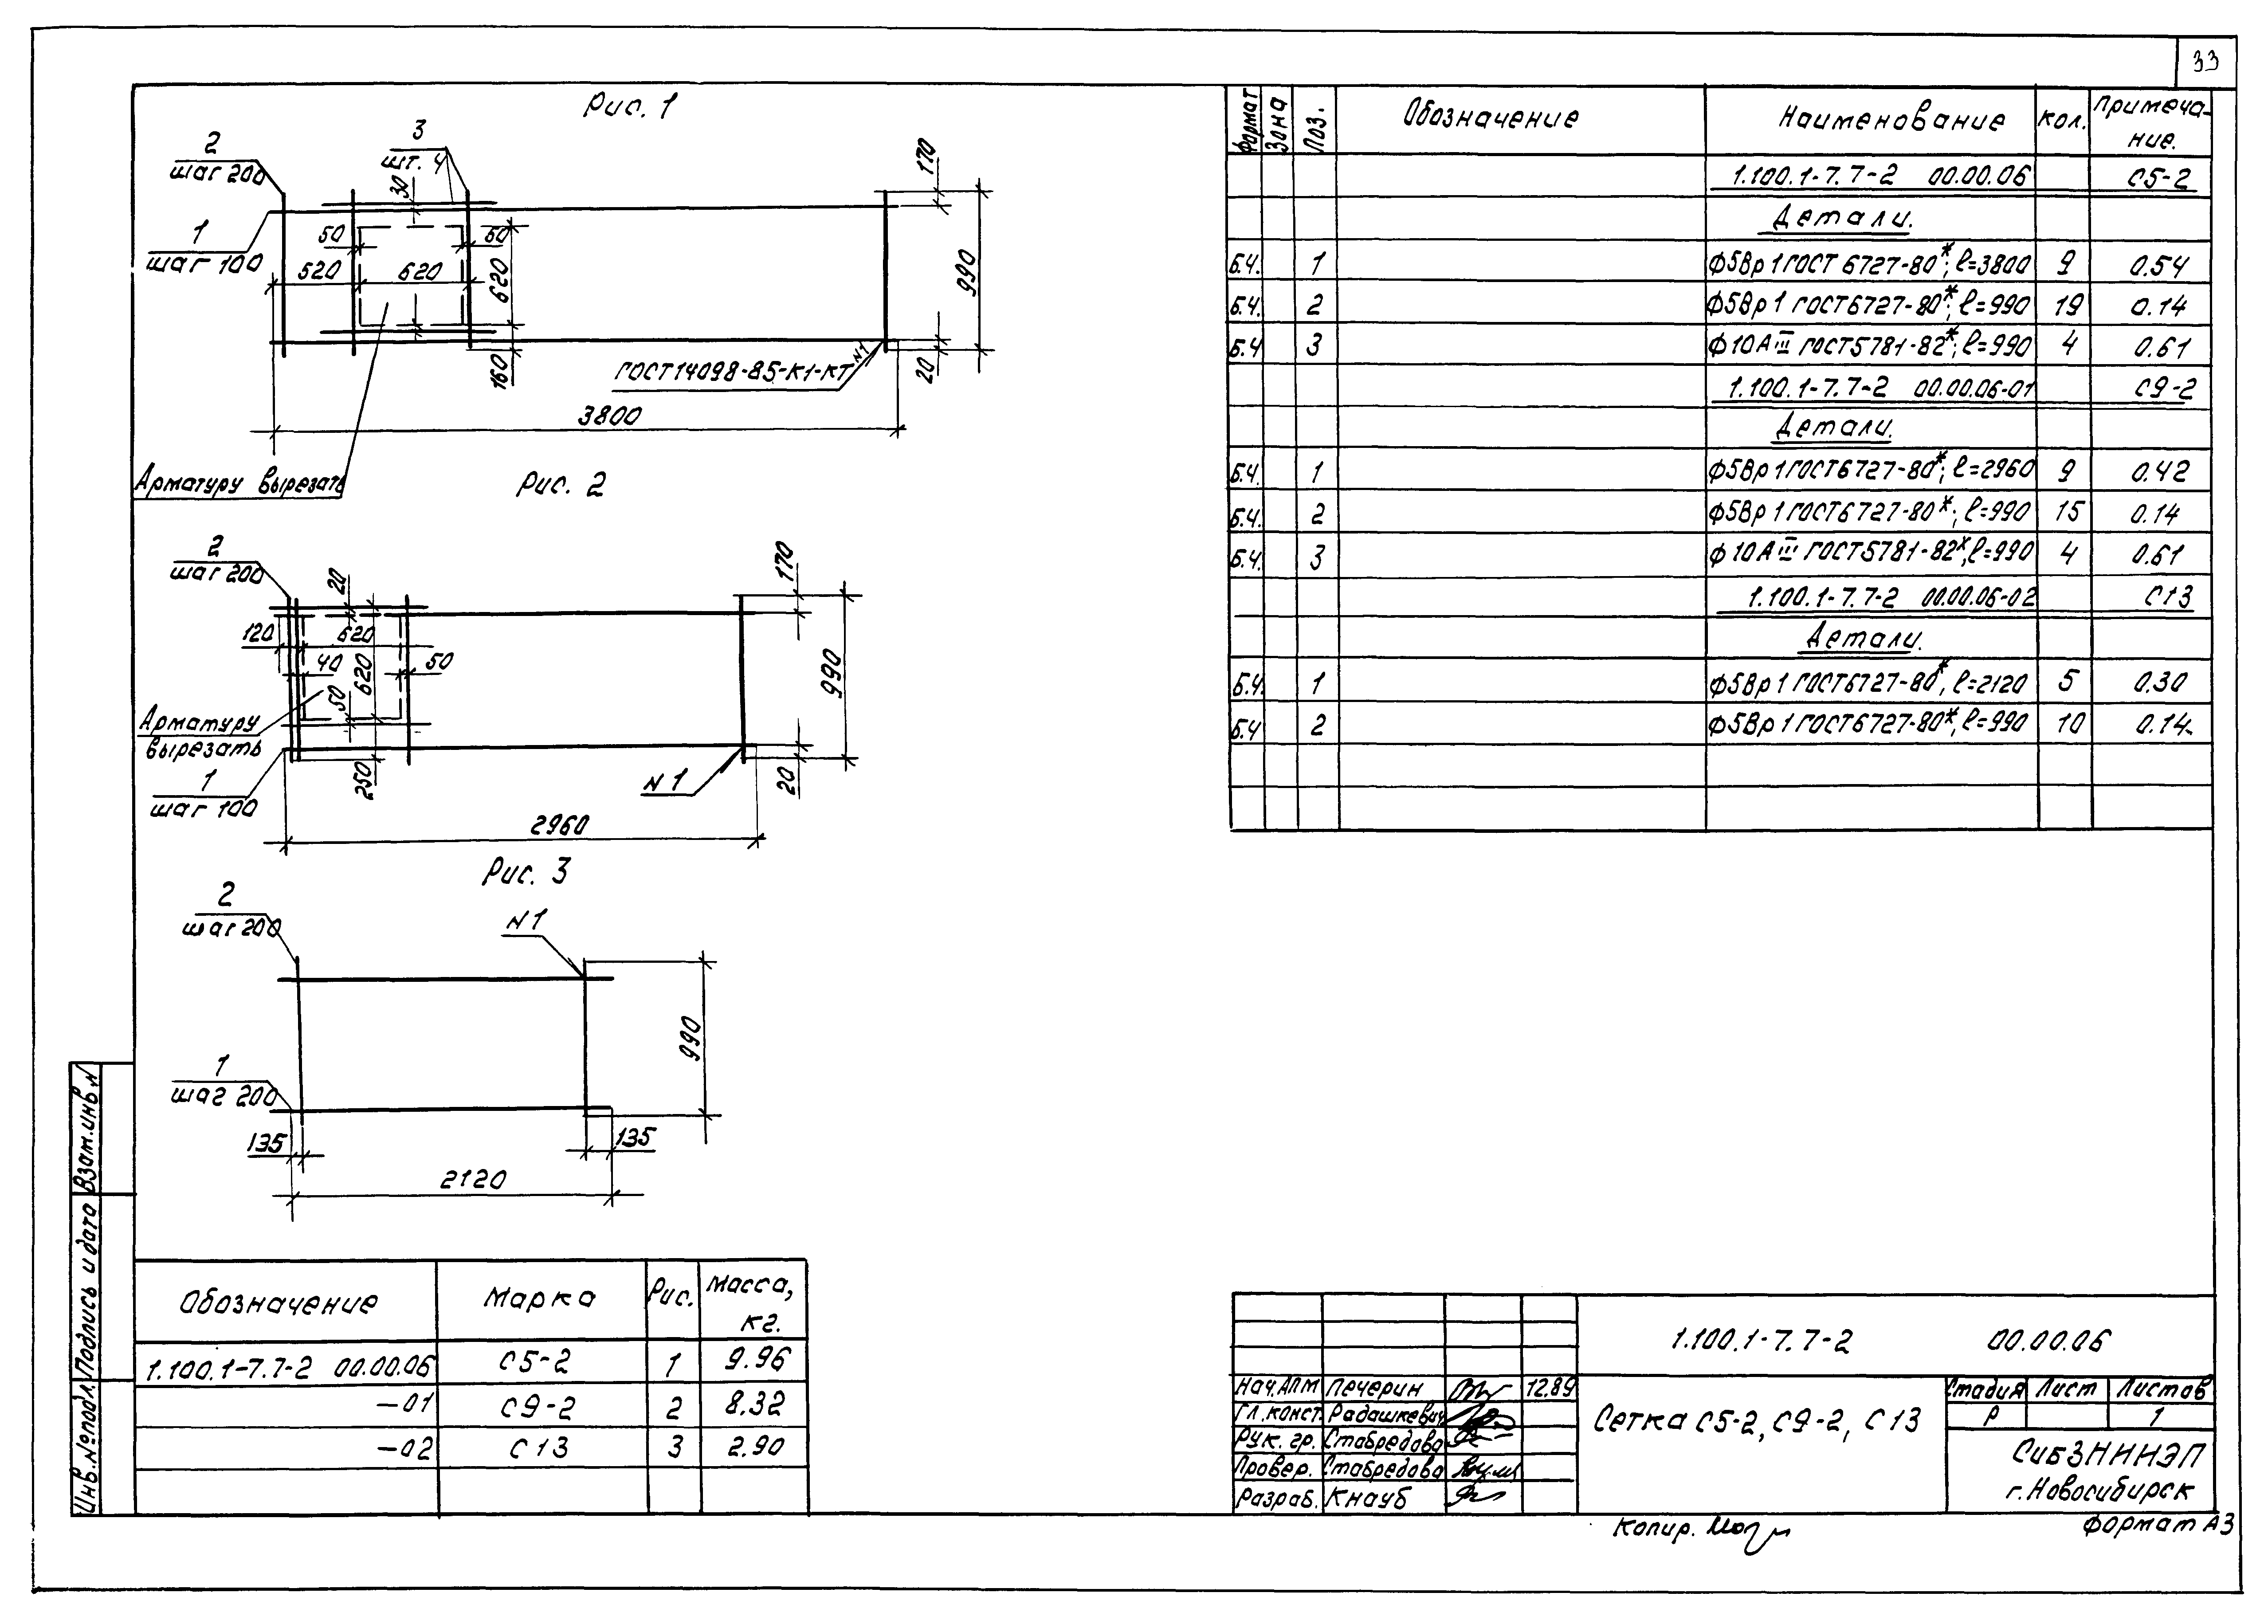 33
Рис. 1
2
шаг 200
3
шт. 4
30
170
1
шаг 100
50
50
520
620
620
990
160
20
ГОСТ14098-85-К1-КТ
N1
3800
Арматуру вырезать
Рис. 2
2
шаг 200
20
170
120
620
40
620
50
50
990
Арматуру
вырезать
250
1
шаг 100
N 1
20
2960
Рис. 3
2
шаг 200
N 1
990
1
шаг 200
135
135
2120
Формат
Зона
Поз.
Обозначение
Наименование
Кол.
Примеча-
ние.
1.100.1-7.7-2 00.00.06 С5-2
Детали.
Б.Ч. 1 Ф5Вр 1 ГОСТ 6727-80*; ℓ=3800 9 0.54
Б.Ч. 2 Ф5Вр 1 ГОСТ6727-80*; ℓ=990 19 0.14
Б.Ч 3 Ф10АIII ГОСТ5781-82*; ℓ=990 4 0.61
1.100.1-7.7-2 00.00.06-01 С9-2
Детали.
Б.Ч. 1 Ф5Вр 1 ГОСТ6727-80*; ℓ=2960 9 0.42
Б.Ч. 2 Ф5Вр 1 ГОСТ6727-80*; ℓ=990 15 0.14
Б.Ч. 3 Ф10АIII ГОСТ5781-82*, ℓ=990 4 0.61
1.100.1-7.7-2 00.00.06-02 С13
Детали.
Б.Ч. 1 Ф5Вр 1 ГОСТ6727-80*, ℓ=2120 5 0.30
Б.Ч 2 Ф5Вр 1 ГОСТ6727-80*, ℓ=990 10 0.14
Обозначение Марка Рис. Масса,
кг.
1.100.1-7.7-2 00.00.06 С5-2 1 9.96
-01 С9-2 2 8.32
-02 С13 3 2.90
Инв. № подл.
Подпись и дата
Взам. инв. N
1.100.1-7.7-2 00.00.06
Нач. АПМ Печерин 12.89
Гл. конст. Радашкевич
Рук. гр. Стабредова
Провер. Стабредова
Разраб. Кнауб
Сетка С5-2, С9-2, С13
Стадия Лист Листов
Р 1
СибЗНИИЭП
г. Новосибирск
Копир.
Формат А3